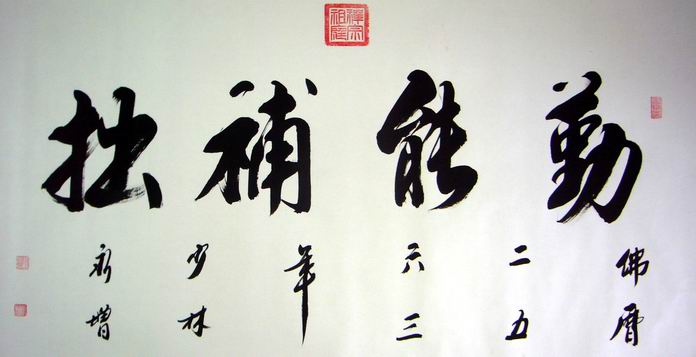 禪宗祖庭
勤能補拙
佛曆
二五
六三
年
少林
永增